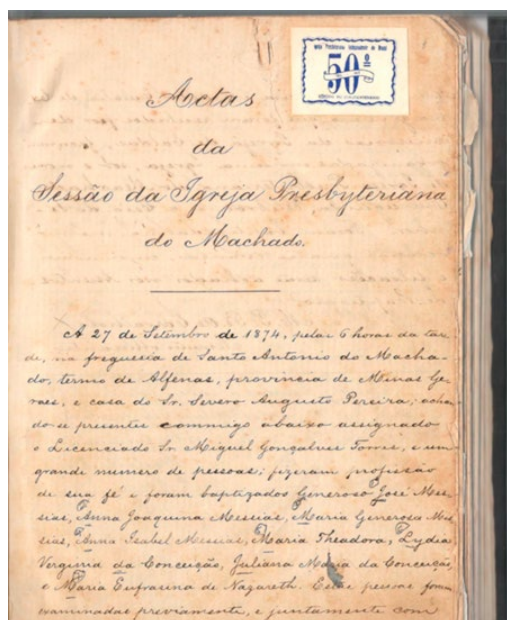 Igreja Presbyteriana Independente do Brasil
50º
Actas
da
Sessão da Igreja Presbyteriana
do Machado.
A 27 de Setembro de 1874, pelas 6 horas da tar-
de, na freguesia de Santo Antonio do Macha-
do, termo de Alfenas, provincia de Minas Ge-
raes, e casa do Sr. Severo Augusto Pereira; achan
do-se presentes commigo abaixo assignado
o Licenciado Sr. Miguel Gonçalves Torres, e um
grande numero de pessoas; fizeram profissão
de sua fé e foram baptizados Generoso José Mes-
sias, Anna Joaquina Messias, Maria Generosa Mes
sias, Anna Isabel Messias, Maria Theodora, Lydia
Verginia da Conceição, Juliana Maria da Conceição,
e Maria Eufrasina de Nazareth. Estas pessoas foram
examinadas previamente, e juntamente com